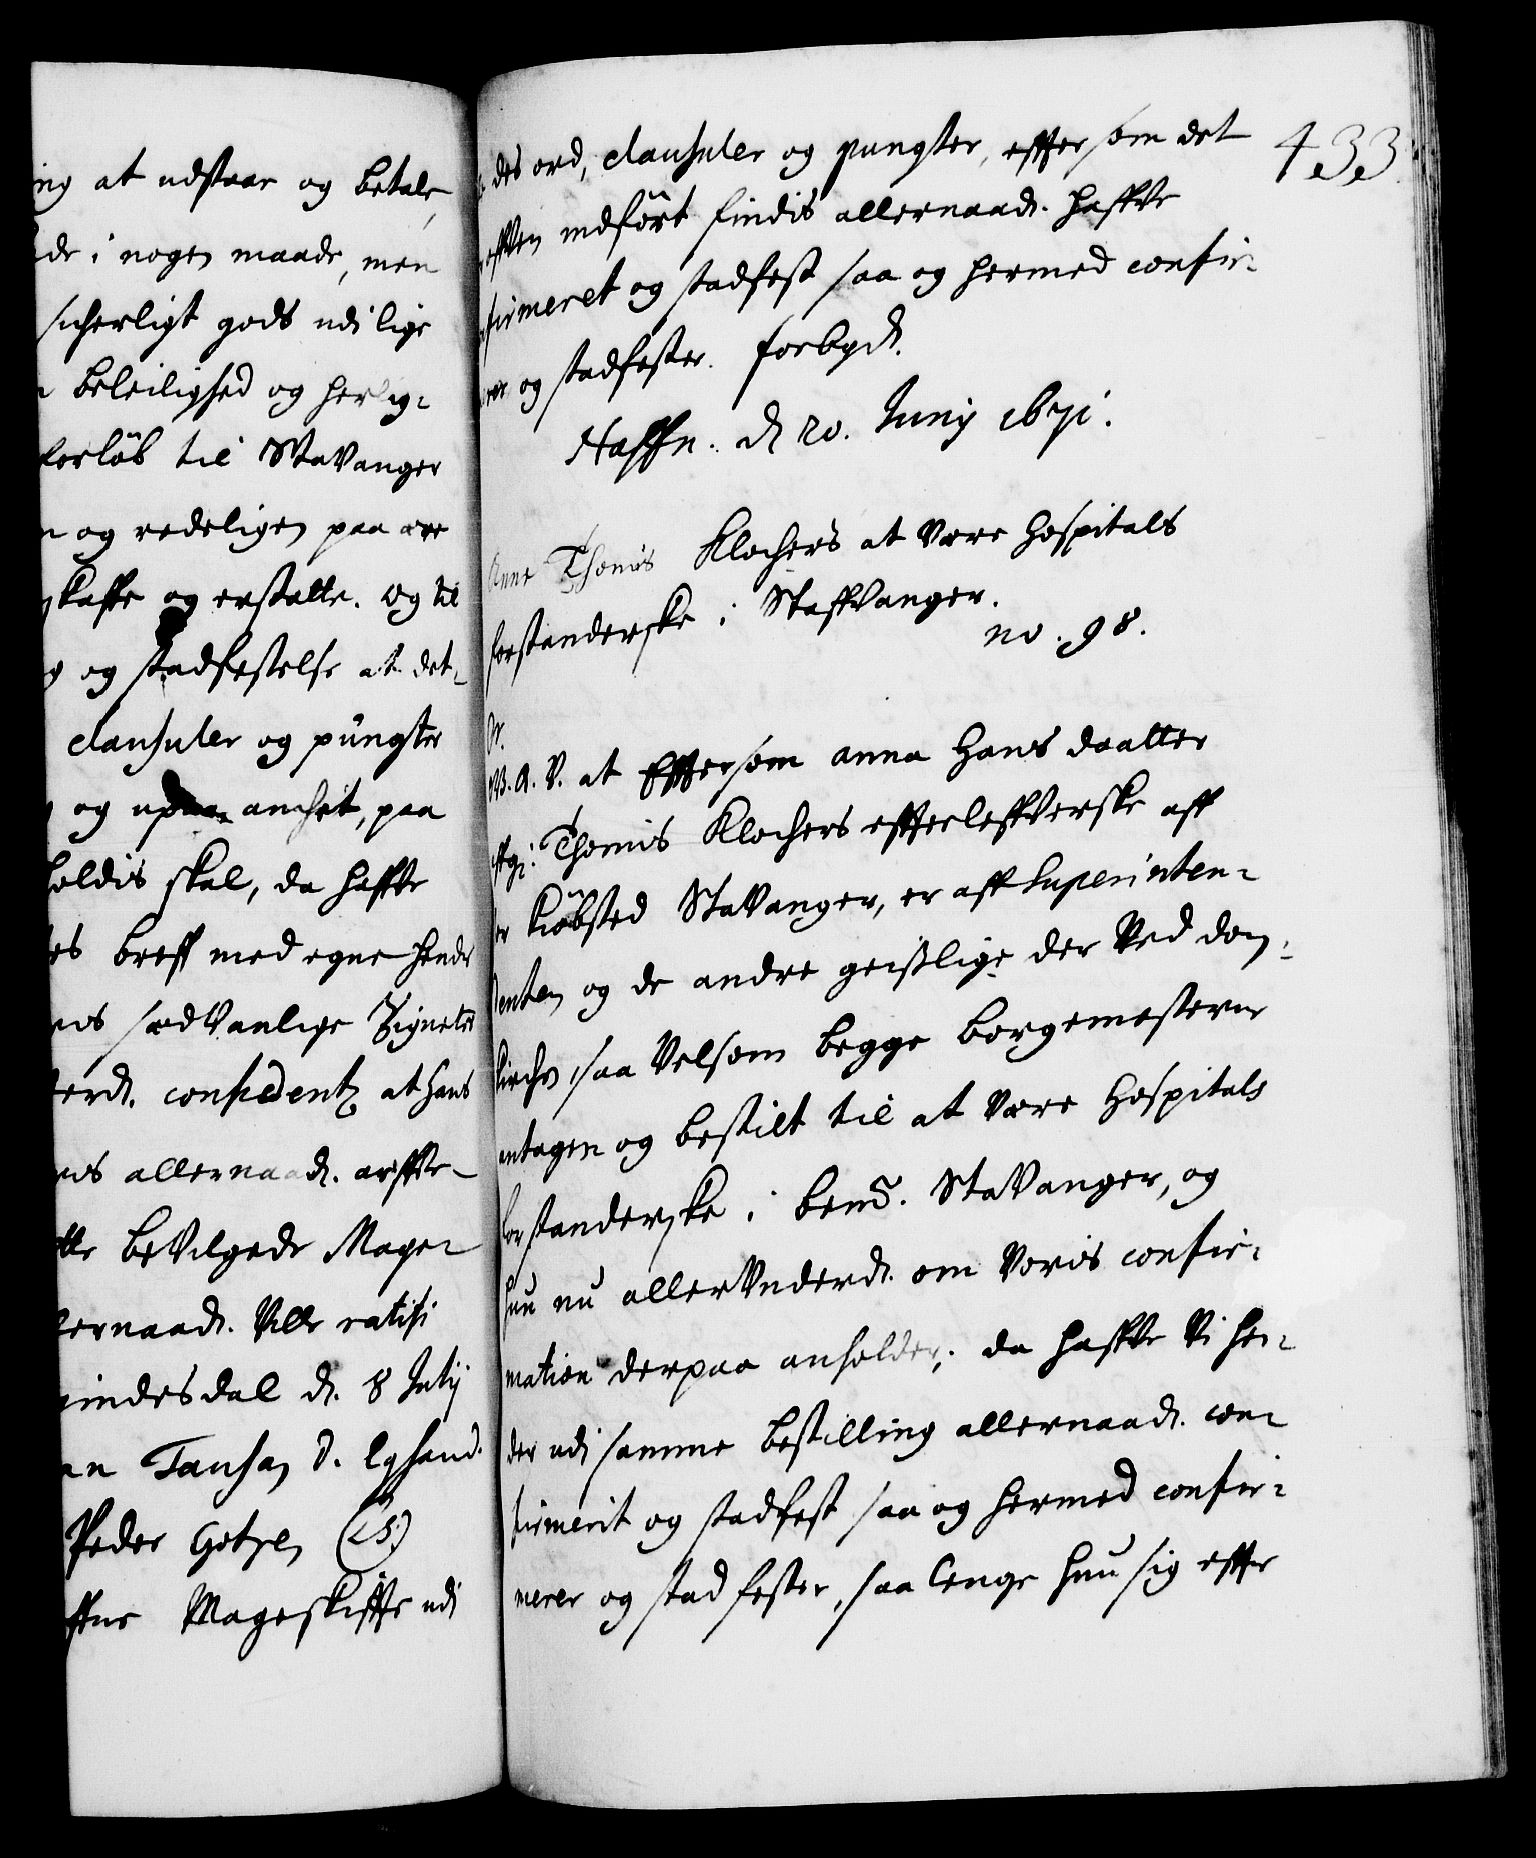 ing at udstaar og betale
de i nogen maade, men
sicherligt gods udi lige
beleilighed og herlig-
forløb til Stavanger
og redeligen paa ære
skaffe og erstatte. Og til
og stadfestelse at det-
clausuler og püngter
og anchet, paa
holdis skal, da haffve
es breff med egne hende
sædvanlige Zigneter
erd. confidentz at hans
allernaad. arffve-
bevilgede Mage-
lernaad. Ville ratifi
indesdal d. 8 Julij
Tausan D. Eghand.
Peder Gotzen (L.S.)
Mageskiffte udi
433.
des ord, clausuler og pungter, effter som det
indført findis allernaad. haffve
firmeret og stadfest saa og hermed confir-
rer og stadfester. Forbyd.
Haffn. d 20. Junij 1671.
Anne Thomis Klochers at være Hospitals
forstanderske i Staffvanger.
no. 98.
G. A. V. at Effter som anna Hans daatter
Thomis Klochers effterleffverske aff
vor kiøbsted Stavanger, er aff Superinten-
denten og de andre geistlige der ved dom-
kirchen, saa velsom begge borgemesterne
antagen og bestilt til at være Hospitals
forstanderske i bemd. Stavanger, og
hun nu allervnderd. om voris confir-
mation derpaa anholder; da haffve Vi hen-
der udi samme bestilling allernaad. con-
firmerit og stadfest saa og hermed confir-
merer og stadfester, saa lenge hun sig effter